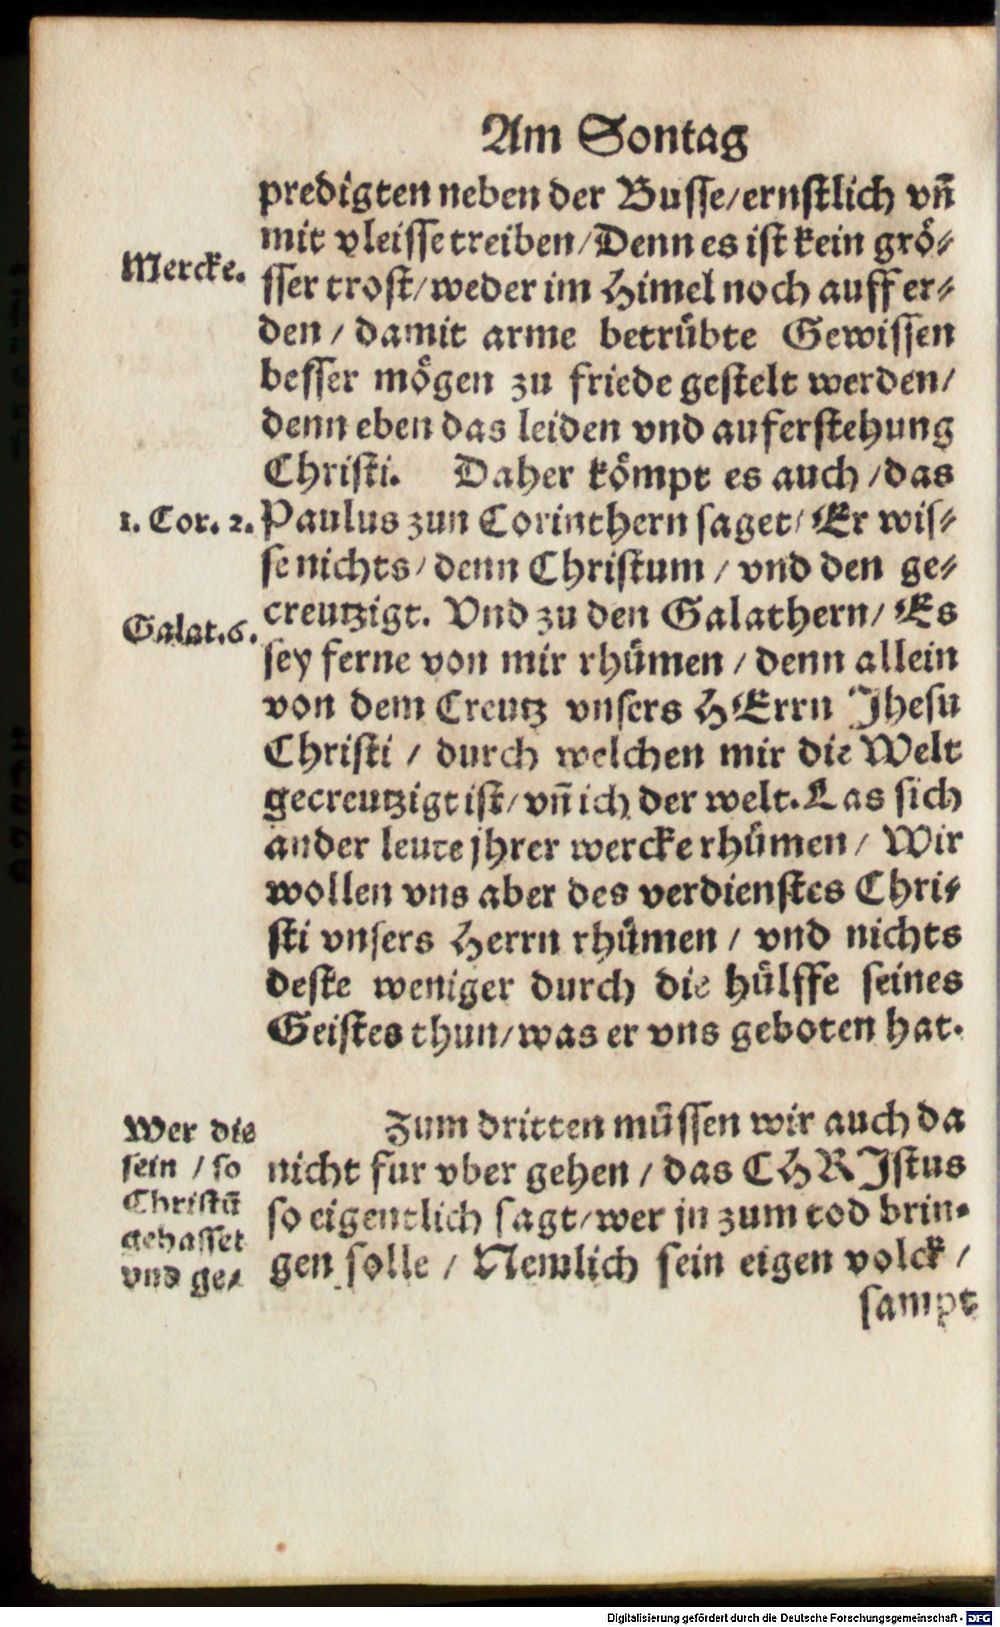 Am Sontag
predigten neben der Busse/ernstlich vñ
mit vleisse treiben/Denn es ist kein grö⸗
Mercke.
sser trost/weder im Himel noch auff er⸗
den / damit arme betrübte Gewissen
besser mögen zu friede gestelt werden/
denn eben das leiden vnd auferstehung
Christi. Daher kömpt es auch /das
1. Cor. 2.
Paulus zun Corinthern saget/ Er wis⸗
se nichts/ denn Christum / vnd den ge⸗
creutzigt. Vnd zu den Galathern/ Es
Galat.6.
sey ferne von mir rhümen / denn allein
von dem Creutz vnsers HErrn Jhesu
Christi / durch welchen mir die Welt
gecreutzigt ist/ vñ ich der welt. Las sich
ander leute jhrer wercke rhümen / Wir
wollen vns aber des verdienstes Chri⸗
sti vnsers Herrn rhümen / vnd nichts
deste weniger durch die hülffe seines
Geistes thun/was er vns geboten hat.
Wer die
sein / so
Christū
gehasset
vnd ge⸗
Zum dritten müssen wir auch da
nicht fur vber gehen / das CHRJstus
so eigentlich sagt/wer jn zum tod brin⸗
gen solle / Nemlich sein eigen volck /
sampt
Digitalisierung gefördert durch die Deutsche Forschungsgemeinschaft - DFG